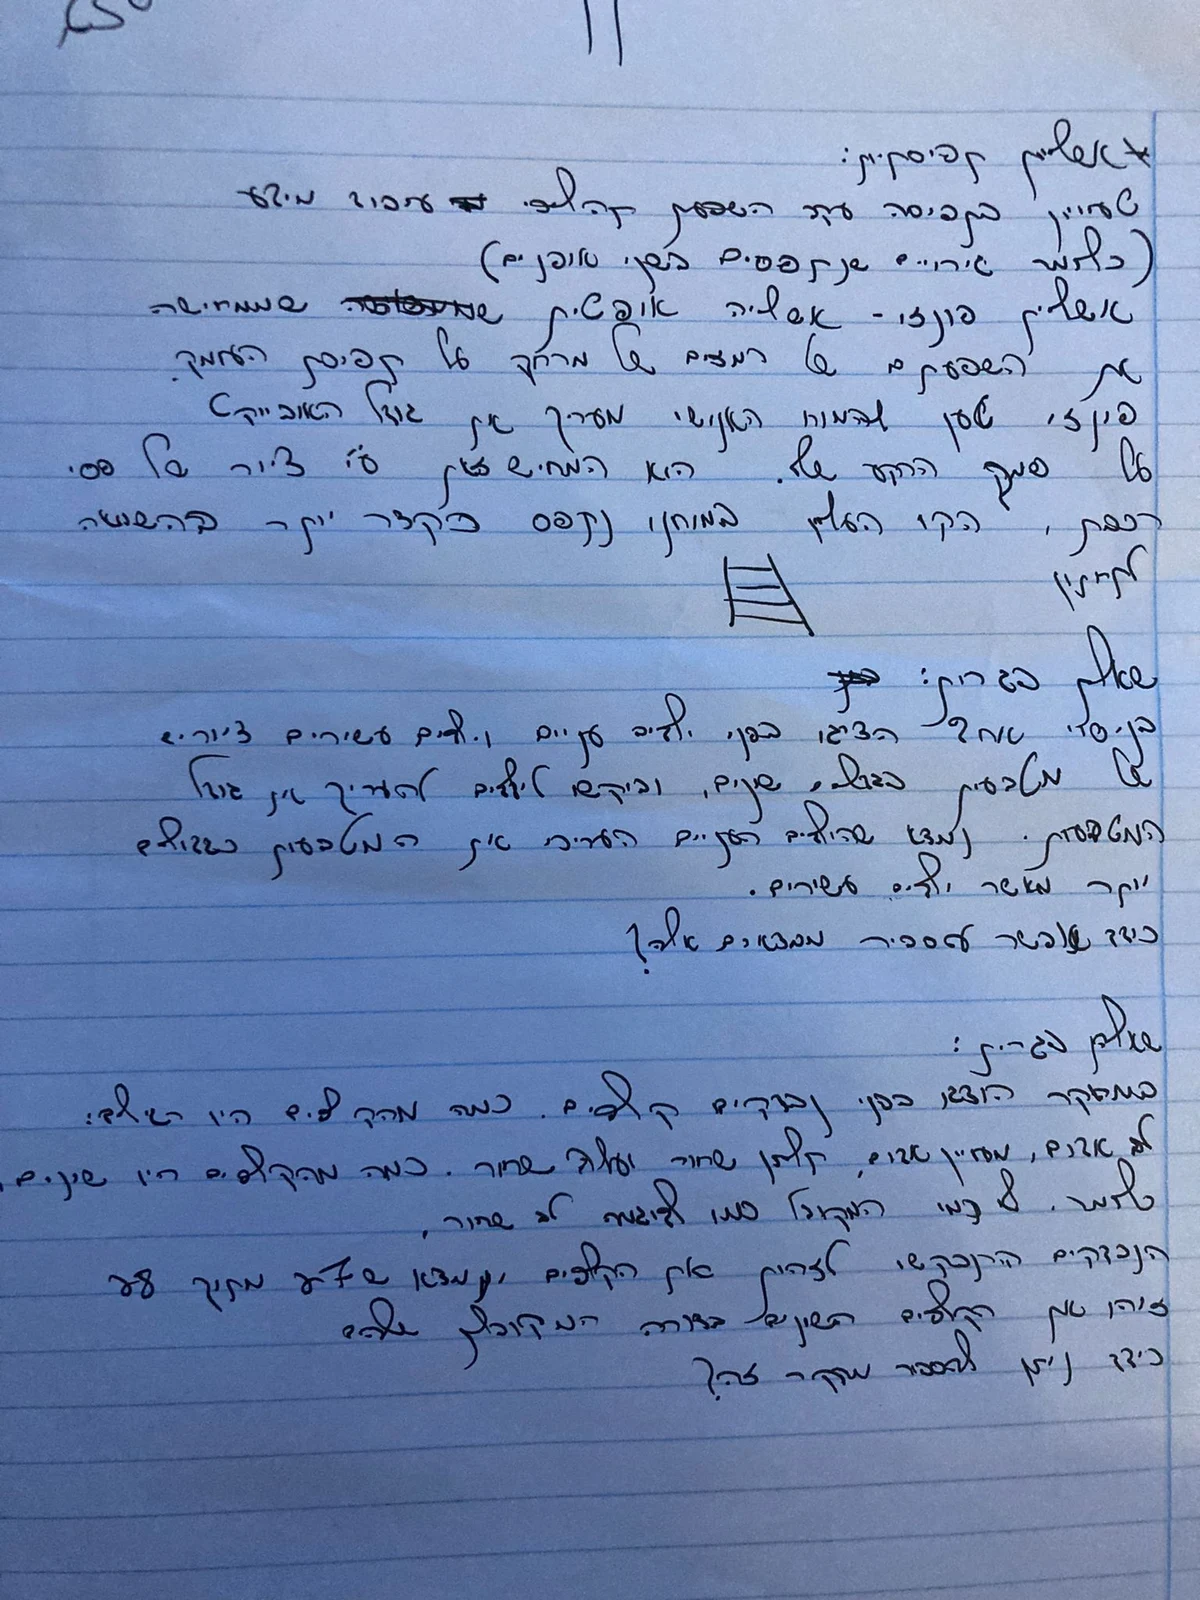 * אשליות תפיסתיות:
טעויות בתפיסה עקב השפעת תהליכי עיבוד מידע
(כלומר גירויים שנתפסים בשני אופנים)
אשליית פונזו - אשליה אופטית שממחישה
את השפעתם של רמזים של מרחק על תפיסת העומק.
פונזו טען שהמוח האנושי מעריך את גודל האובייקט
על סמך הרקע שלו. הוא המחיש זאת ע"י ציור של פסי
רכבת, הקו העליון במוחנו נתפס כקצר יותר בהשוואה
לתחתון
שאלת בגרות:
בניסוי אחד הציגו בפני ילדים עניים וילדים עשירים ציורים
של מטבעות בגדלים שונים, וביקשו לילדים להעריך את גודל
המטבעות. נמצא שהילדים העניים העריכו את המטבעות כגדולים
יותר מאשר ילדים עשירים.
כיצד אפשר להסביר ממצאים אלה?
שאלת בגרות:
במחקר הוצגו בפני נבדקים קלפים. כמה מהקלפים היו רגילים:
לב אדום, מעויין אדום, תלתן שחור ועלה שחור. כמה מהקלפים היו שונים,
כלומר. לא כפי המקובל כמו לדוגמה לב שחור.
הנבדקים התבקשו לזהות את הקלפים ונמצא ש
זיהו את הקלפים השונים בצורה המקובלת שלהם
כיצד ניתן להסביר מחקר זה?